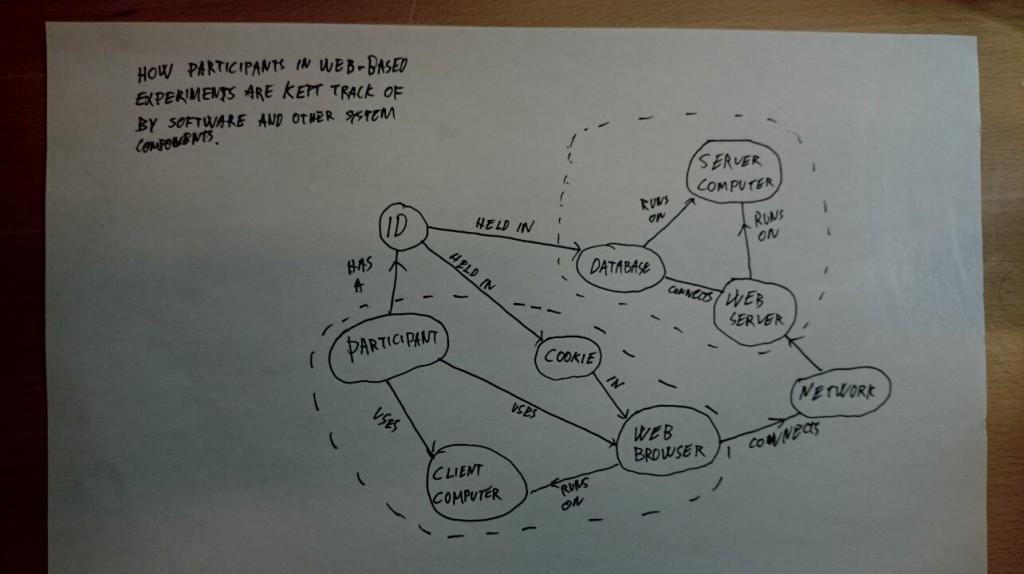 HOW PARTICIPANTS IN WEB-BASED
EXPERIMENTS ARE KEPT TRACK OF
BY SOFTWARE AND OTHER SYSTEM
COMPONENTS.
SERVER
COMPUTER
RUNS
ON
RUNS
ON
ID
HELD IN
DATABASE
HELD IN
HAS
A
CONNECTS
WEB
SERVER
PARTICIPANT
COOKIE
IN
NETWORK
USES
USES
WEB
BROWSER
CONNECTS
CLIENT
COMPUTER
RUNS
ON